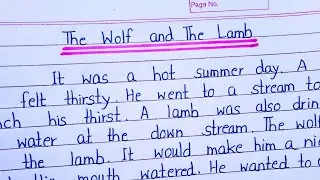 Page No.
The Wolf and The Lamb
It was a hot summer day. A
felt thirsty. He went to a stream to
his thirst. A lamb was also
water at the down stream. The wolf
the lamb. It would make him a
mouth watered. He wanted to